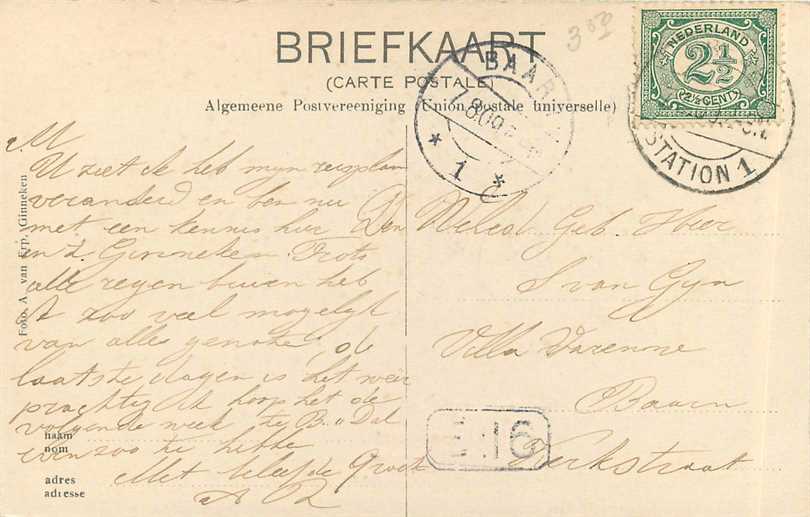 3 00
BRIEFKAART
(CARTE POSTALE)
Algemeene Postvereeniging (Union Postale universelle)
NEDERLAND
2½
(2½ CENT)
BAARN
* 1 *
STATION 1
Foto. A. van Erp, Ginneken
M
U ziet ik heb mijn reisplan
veranderd en ben nu
met een kennis hier
en 't Ginneken Trots
alle regen buien heb
ik zoo veel mogelijk
van alles genoten de
laatste dagen is het weer
prachtig ik hoop het de
volgende week te B. Dal
even zoo te hebben
Met beleefde Groet
A
Den WelEd. Geb. Heer
J van Gijn
Villa Varenne
Baarn
Kerkstraat
E 16
naam
nom
adres
adresse